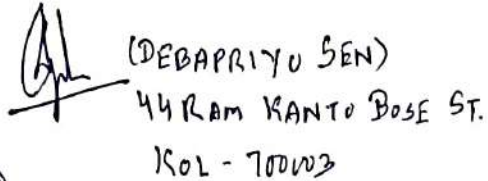 (DEBAPRIYO SEN)
44 RAM KANTO BOSE ST.
KOL - 700003